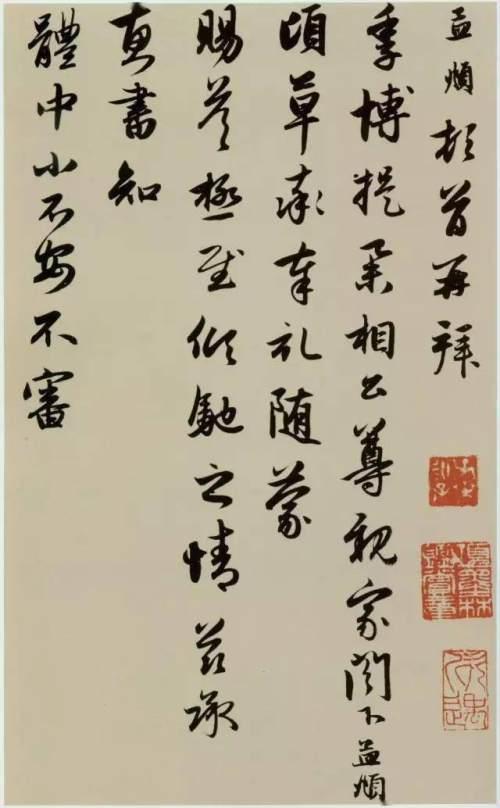 孟頫頓首再拜
季博提舉相公尊親家閣下孟頫
頃草率奉札随蒙
賜答極感傾馳之情茲承
惠書知
體中小不安不審